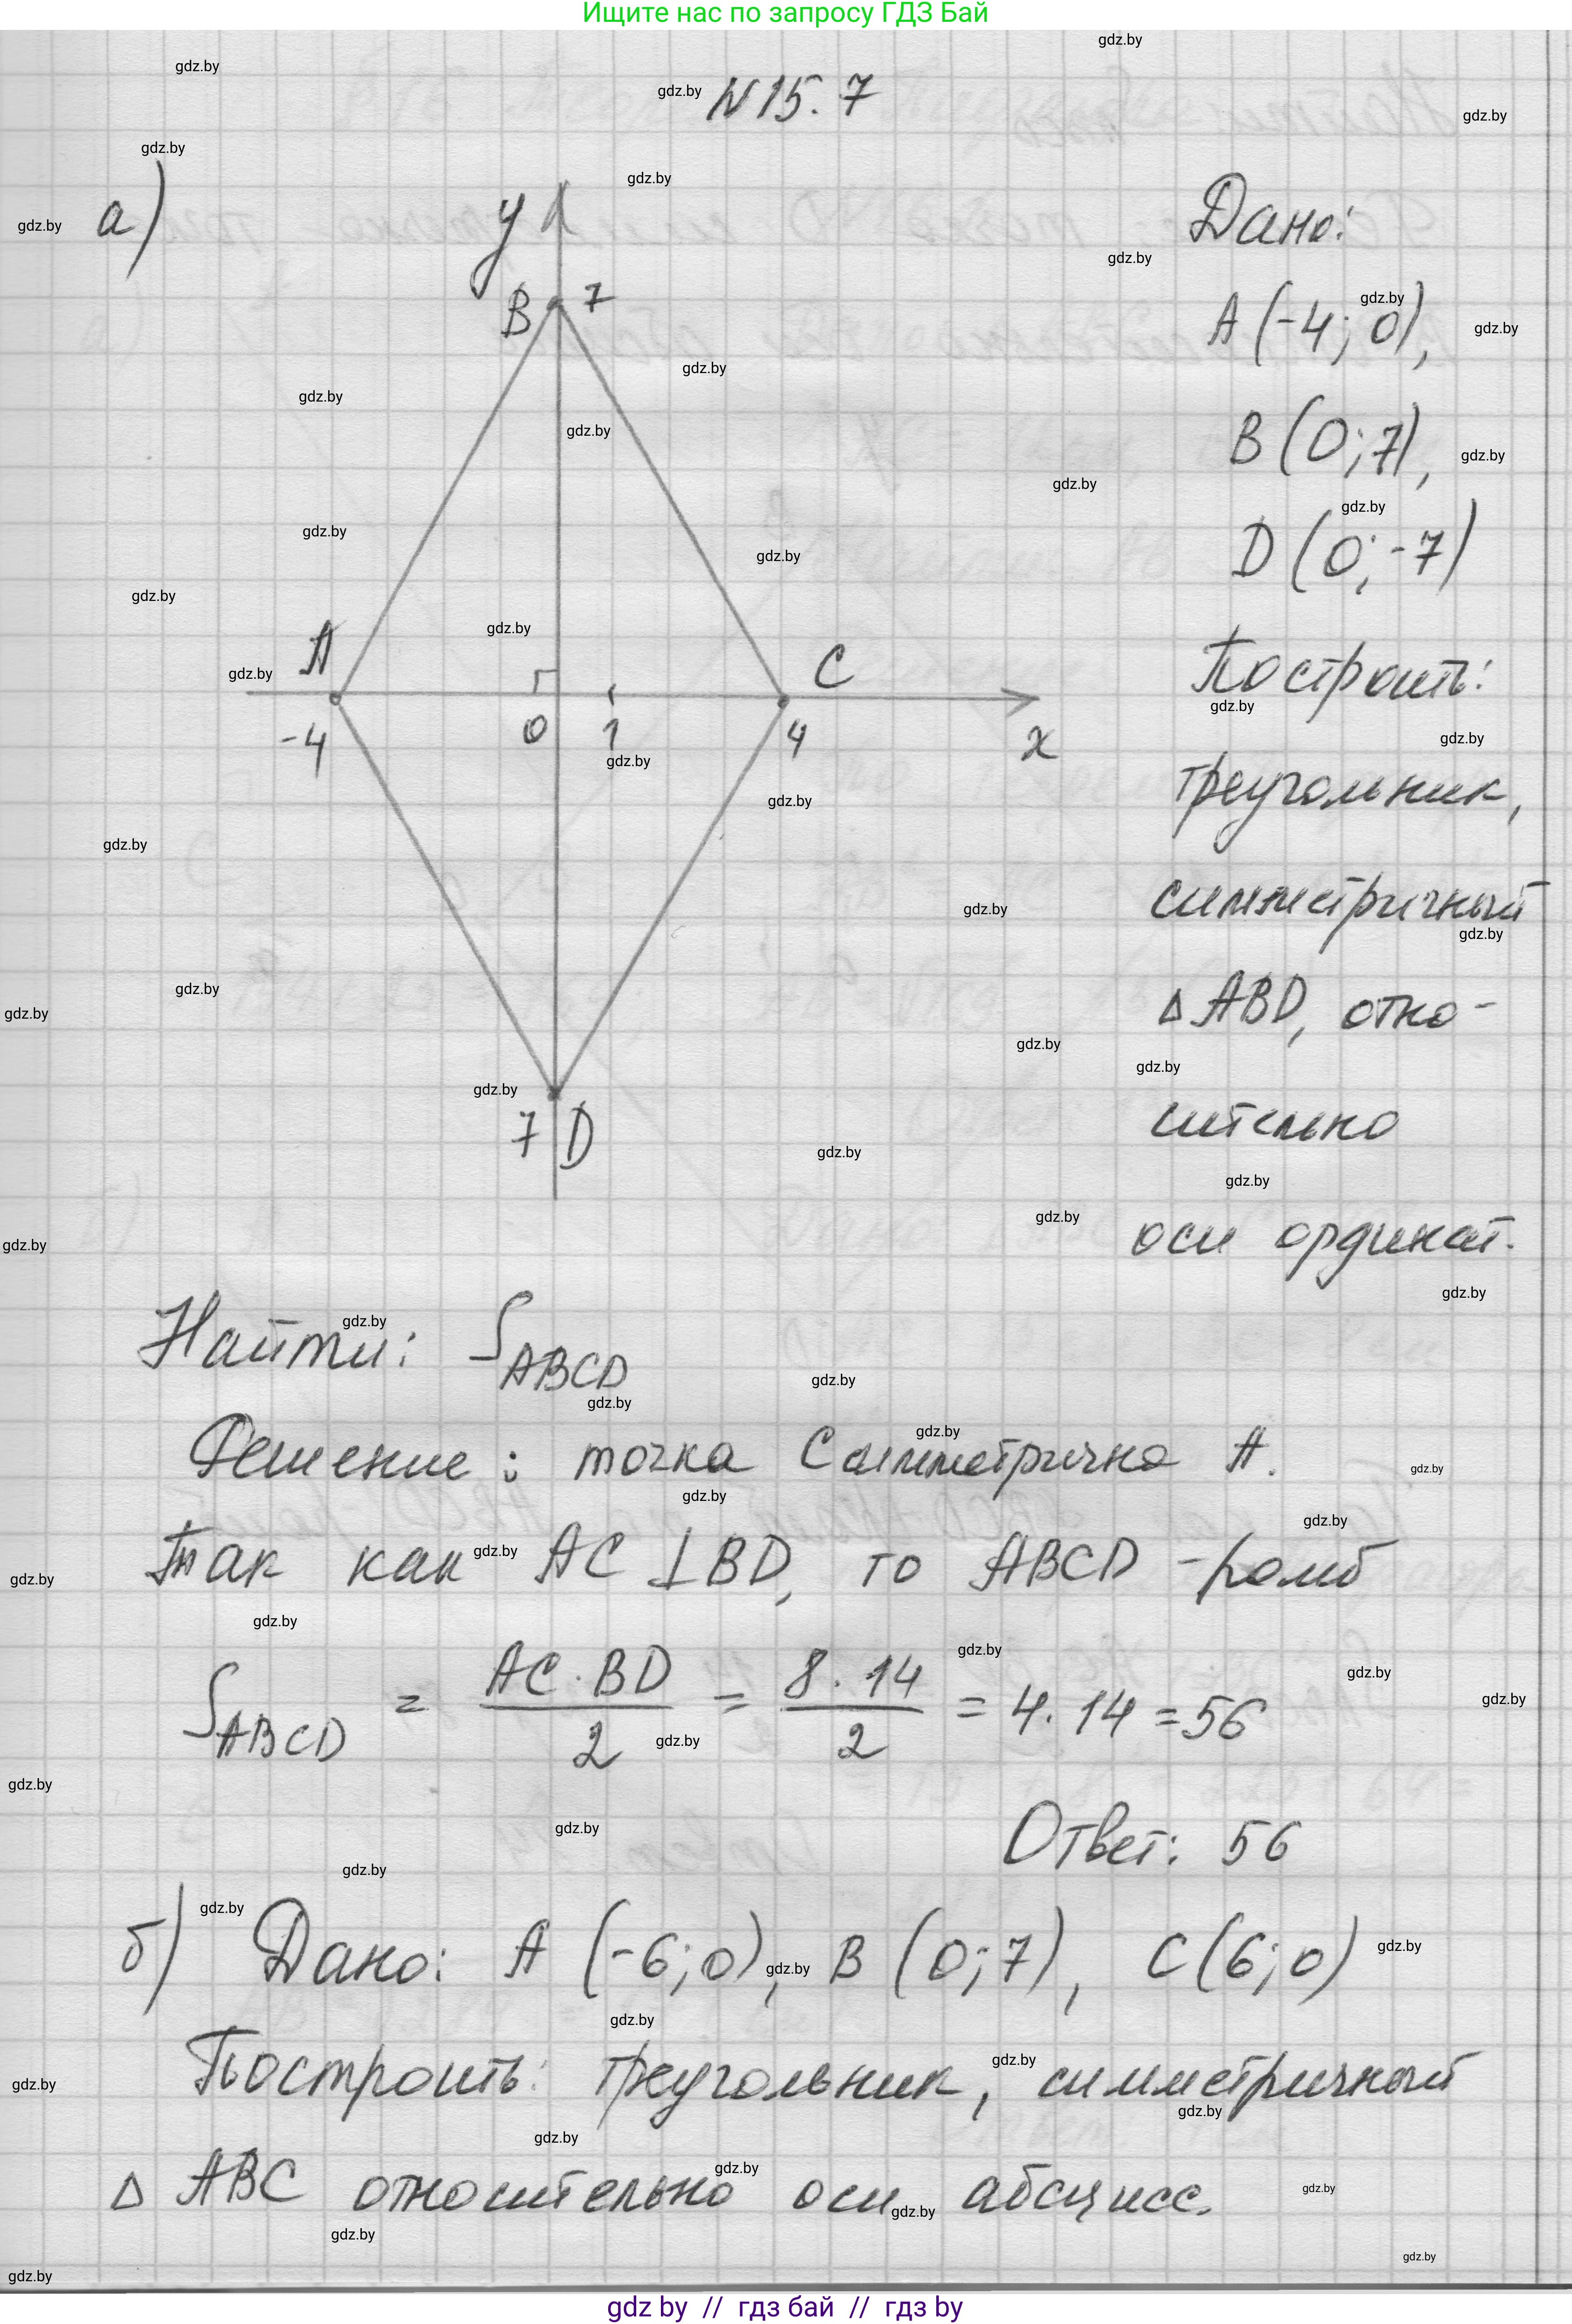 Ищите нас по запросу ГДЗ Бай
N 15.7
а)
y
B 7
A
C
-4
0
1
4
x
7 D
Дано:
A (-4; 0),
B (0; 7),
D (0; -7)
Построить:
треугольник,
симметричный
Δ ABD, отно-
сительно
оси ординат.
Найти: S ABCD
Решение: точка C симметрична A.
Так как AC ⊥ BD, то ABCD - ромб
S ABCD = AC · BD / 2 = 8 · 14 / 2 = 4 · 14 = 56
Ответ: 56
б) Дано: A (-6; 0), B (0; 7), C (6; 0)
Построить: треугольник, симметричный
Δ ABC относительно оси абсцисс.
gdz by // гдз бай // гдз by